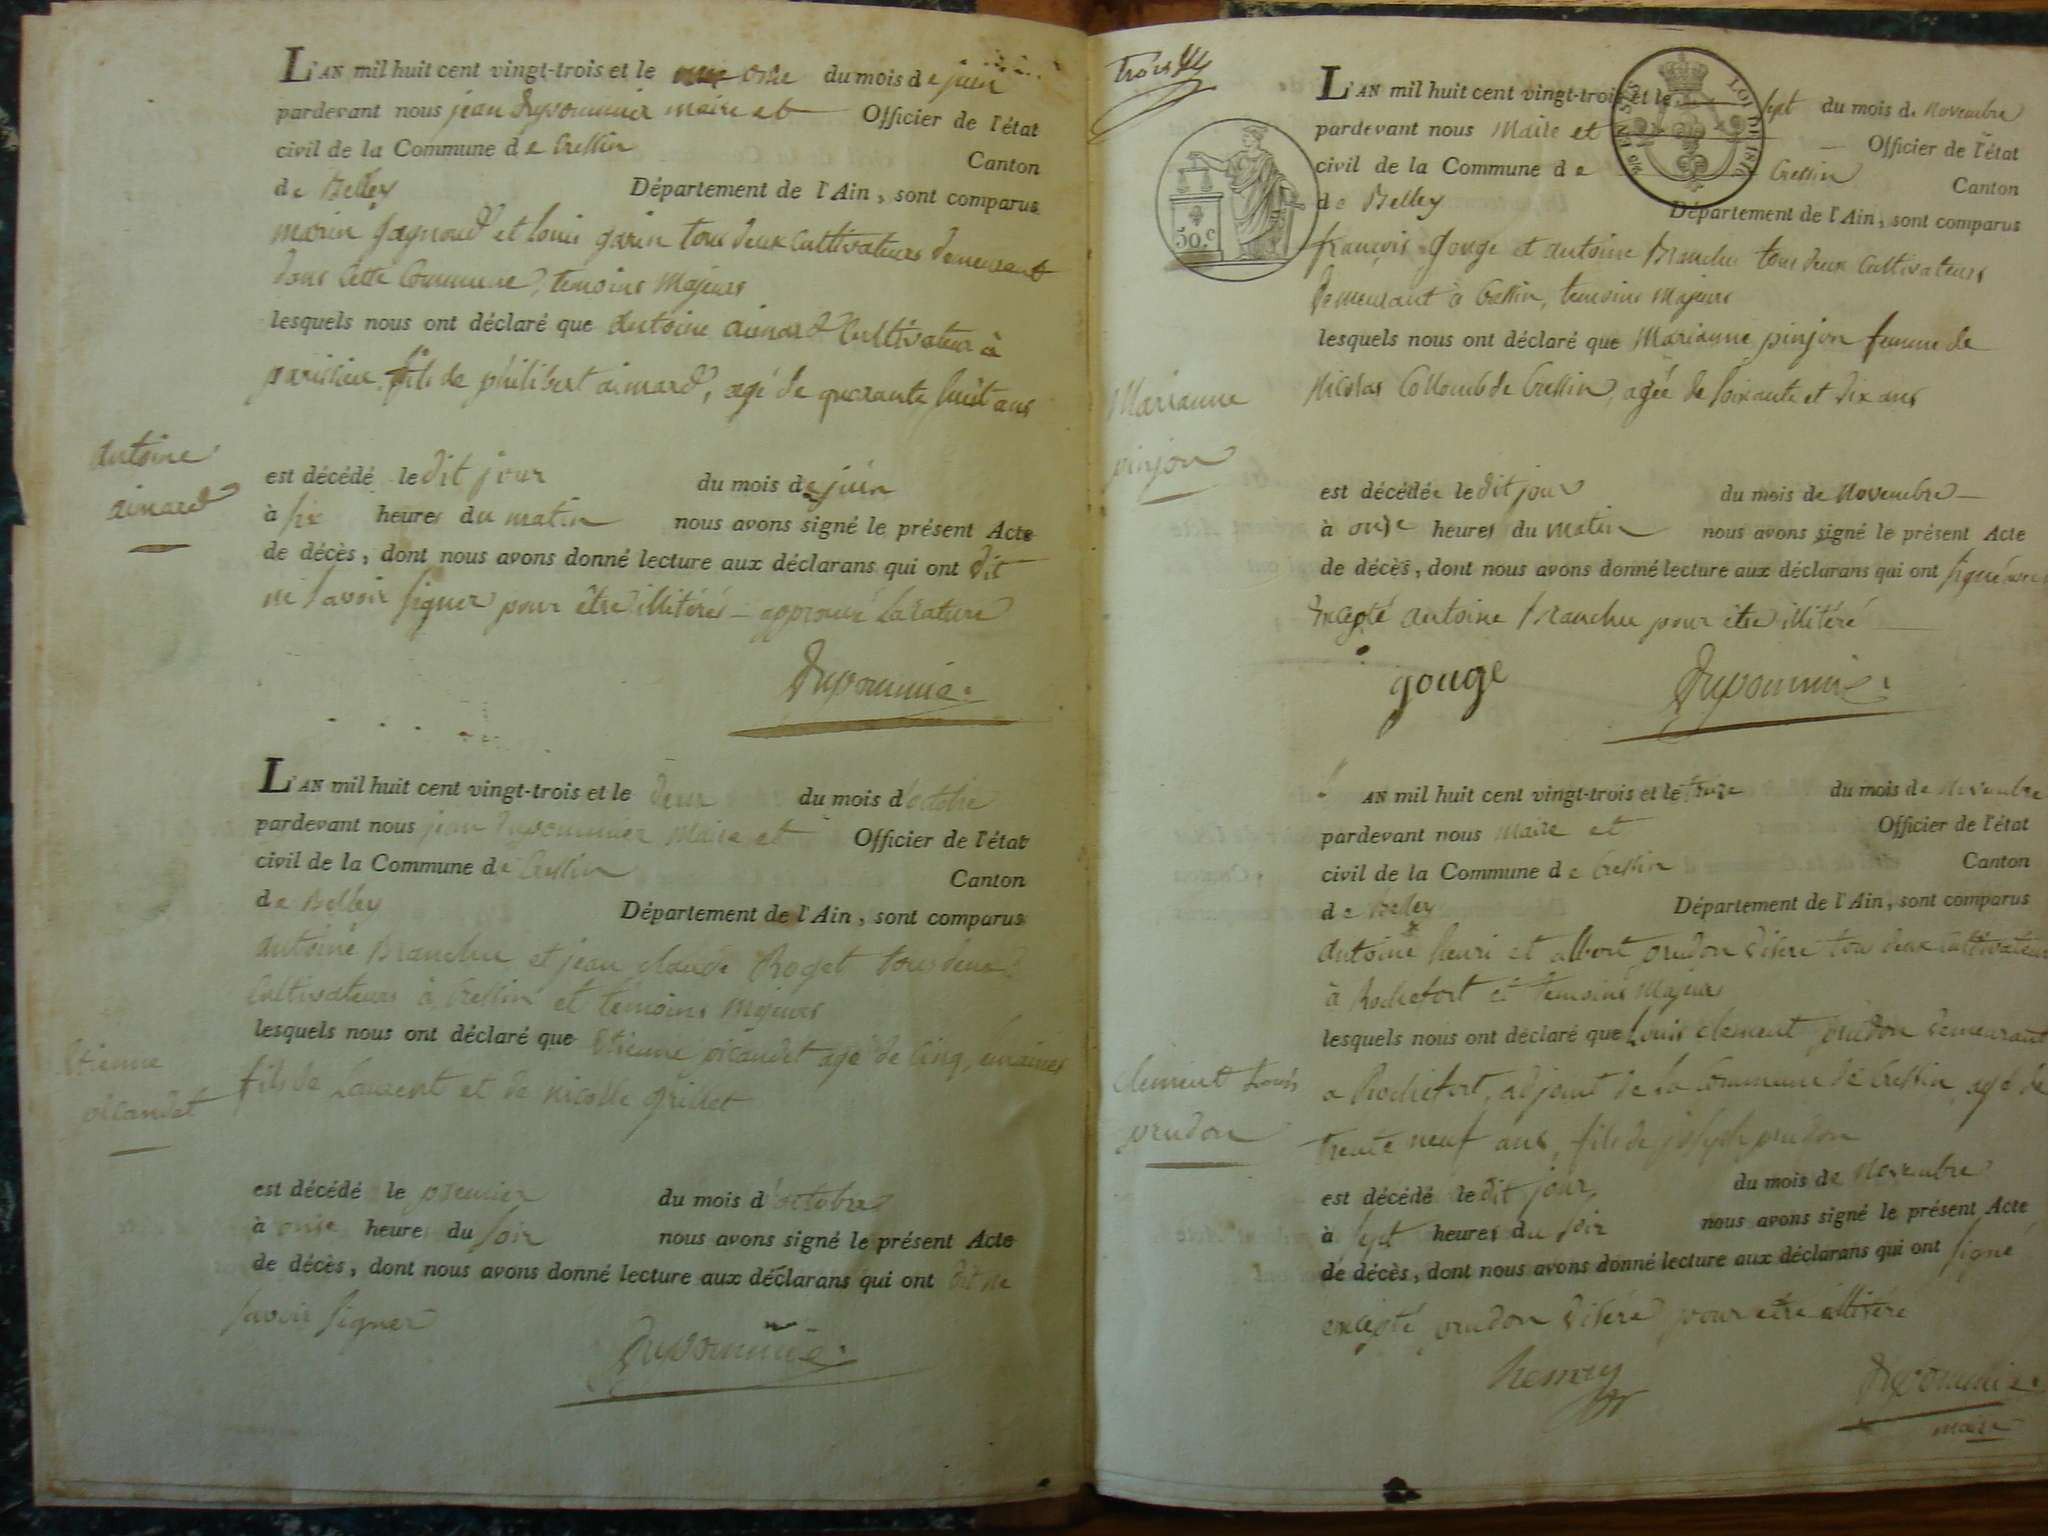 L'AN mil huit cent vingt-trois et le onze du mois de juin
pardevant nous jean Dupommier maire et Officier de l'état
civil de la Commune de Cressin Canton
de Belley Département de l'Ain, sont comparus
marin gagnoud et louis garin tous deux Cultivateurs demeurant
dans cette Commune, temoins Majeurs
lesquels nous ont déclaré que antoine aimard Cultivateur à
parissieu fils de philibert aimard, agé de quarante huit ans
antoine
aimard
est décédé le dit jour du mois de juin
à six heures du matin nous avons signé le présent Acte
de décès, dont nous avons donné lecture aux déclarans qui ont dit
ne savoir signer pour être illitérés - approuvé la rature
Dupommier
L'AN mil huit cent vingt-trois et le deux du mois d'octobre
pardevant nous jean Dupommier Maire et Officier de l'état
civil de la Commune de Cressin Canton
de Belley Département de l'Ain, sont comparus
antoine Branchu et jean claude Roget tous deux
Cultivateurs à Cressin et temoins Majeurs
lesquels nous ont déclaré que Etienne picandet agé de Cinq semaines
fils de Laurent et de nicolle grillet
Etienne
picandet
est décédé le premier du mois d'octobre
à onze heures du soir nous avons signé le présent Acte
de décès, dont nous avons donné lecture aux déclarans qui ont dit ne
savoir signer
Dupommier
trois
50.c
LOI DE 1816
L'AN mil huit cent vingt-trois et le sept du mois de Novembre
pardevant nous Maire et Officier de l'état
civil de la Commune de Cressin Canton
de Belley Département de l'Ain, sont comparus
françois Gouge et antoine Branchu tous deux Cultivateurs
demeurant à Cressin, temoins Majeurs
lesquels nous ont déclaré que Marianne pinjon femme de
Nicolas Collomb de Cressin, agée de soixante et dix ans
Marianne
pinjon
est décédée le dit jour du mois de Novembre
à onze heures du matin nous avons signé le présent Acte
de décès, dont nous avons donné lecture aux déclarans qui ont signé
Excepté antoine Branchu pour être illitéré
gouge Dupommier
AN mil huit cent vingt-trois et le treize du mois de Novembre
pardevant nous Maire et Officier de l'état
civil de la Commune de Cressin Canton
de Belley Département de l'Ain, sont comparus
antoine henri et albert prudon tous deux Cultivateurs
à Rochefort et temoins Majeurs
lesquels nous ont déclaré que Louis clement prudon demeurant
a Rochefort, adjoint de la Commune de Cressin, agé de
trente neuf ans, fils de joseph prudon
clement louis
prudon
est décédé le dit jour du mois de Novembre
à sept heures du soir nous avons signé le présent Acte
de décès, dont nous avons donné lecture aux déclarans qui ont signé
excepté prudon pour etre illitéré
henry Dupommier
maire